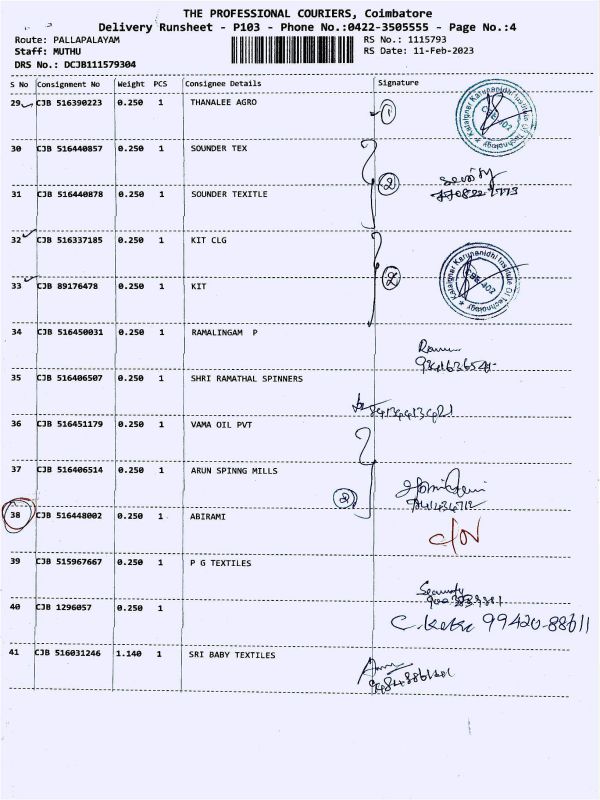 THE PROFESSIONAL COURIERS, Coimbatore
Delivery Runsheet - P103 - Phone No.:0422-3505555 - Page No.:4
Route: PALLAPALAYAM RS No.: 1115793
Staff: MUTHU RS Date: 11-Feb-2023
DRS No.: DCJB111579304
S No Consignment No Weight PCS Consignee Details Signature
29 CJB 516390223 0.250 1 THANALEE AGRO 1
Kalaignar Karunanidhi Institute Of Technology
CBE-402
30 CJB 516440857 0.250 1 SOUNDER TEX
31 CJB 516440878 0.250 1 SOUNDER TEXITLE 2
32 CJB 516337185 0.250 1 KIT CLG
33 CJB 89176478 0.250 1 KIT 2
Kalaignar Karunanidhi Institute Of Technology
CBE-402
34 CJB 516450031 0.250 1 RAMALINGAM P
35 CJB 516406507 0.250 1 SHRI RAMATHAL SPINNERS
36 CJB 516451179 0.250 1 VAMA OIL PVT
37 CJB 516406514 0.250 1 ARUN SPINNG MILLS 2
38 CJB 516448002 0.250 1 ABIRAMI C/N
39 CJB 515967667 0.250 1 P G TEXTILES
Security
40 CJB 1296057 0.250 1 99420-88611
41 CJB 516031246 1.140 1 SRI BABY TEXTILES